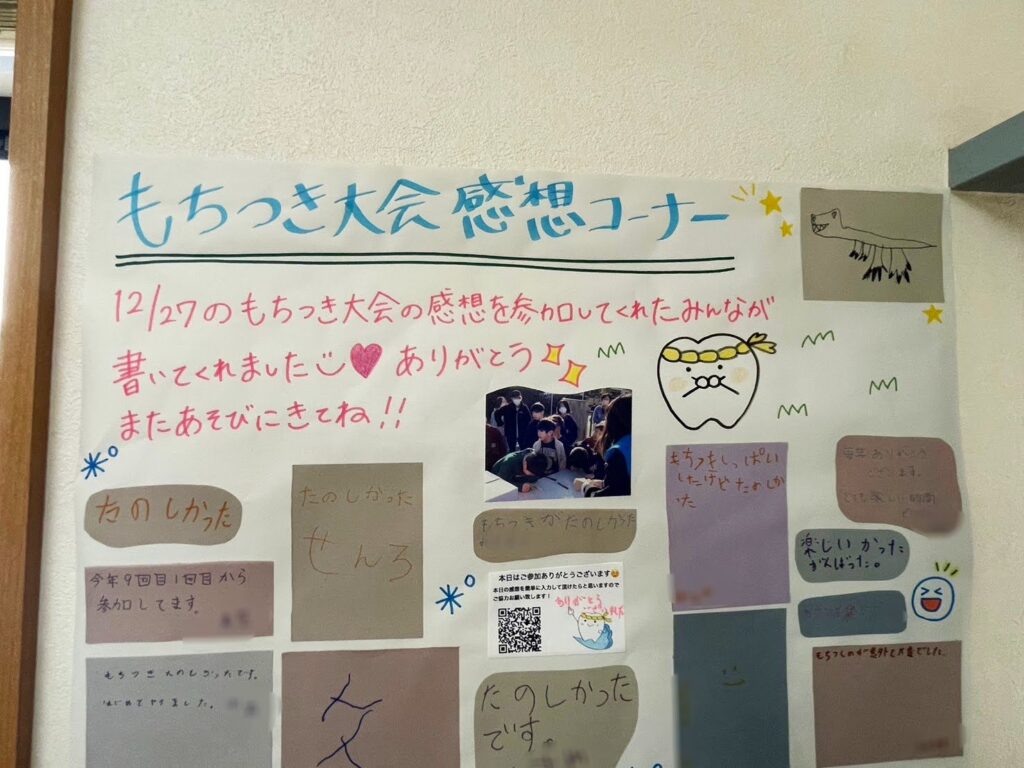 もちつき大会感想コーナー
12/27のもちつき大会の感想を参加してくれたみんなが
書いてくれました ありがとう
またあそびにきてね!!
たのしかった
たのしかった
せんろ
もちつきがたのしかった
もちつきしっぱい
したけど たのしかっ
た
毎年ありがとう
ございます。
とても楽しい時間
楽しいかった
がんばった。
今年9回目1回目から
参加してます。
本日はご参加ありがとうございます
本日の感想を簡単に入力して頂けたらと思いますので
ご協力お願い致します!
ありがとう
もちつき たのしかったです。
はじめてやりました。
たのしかった
です。